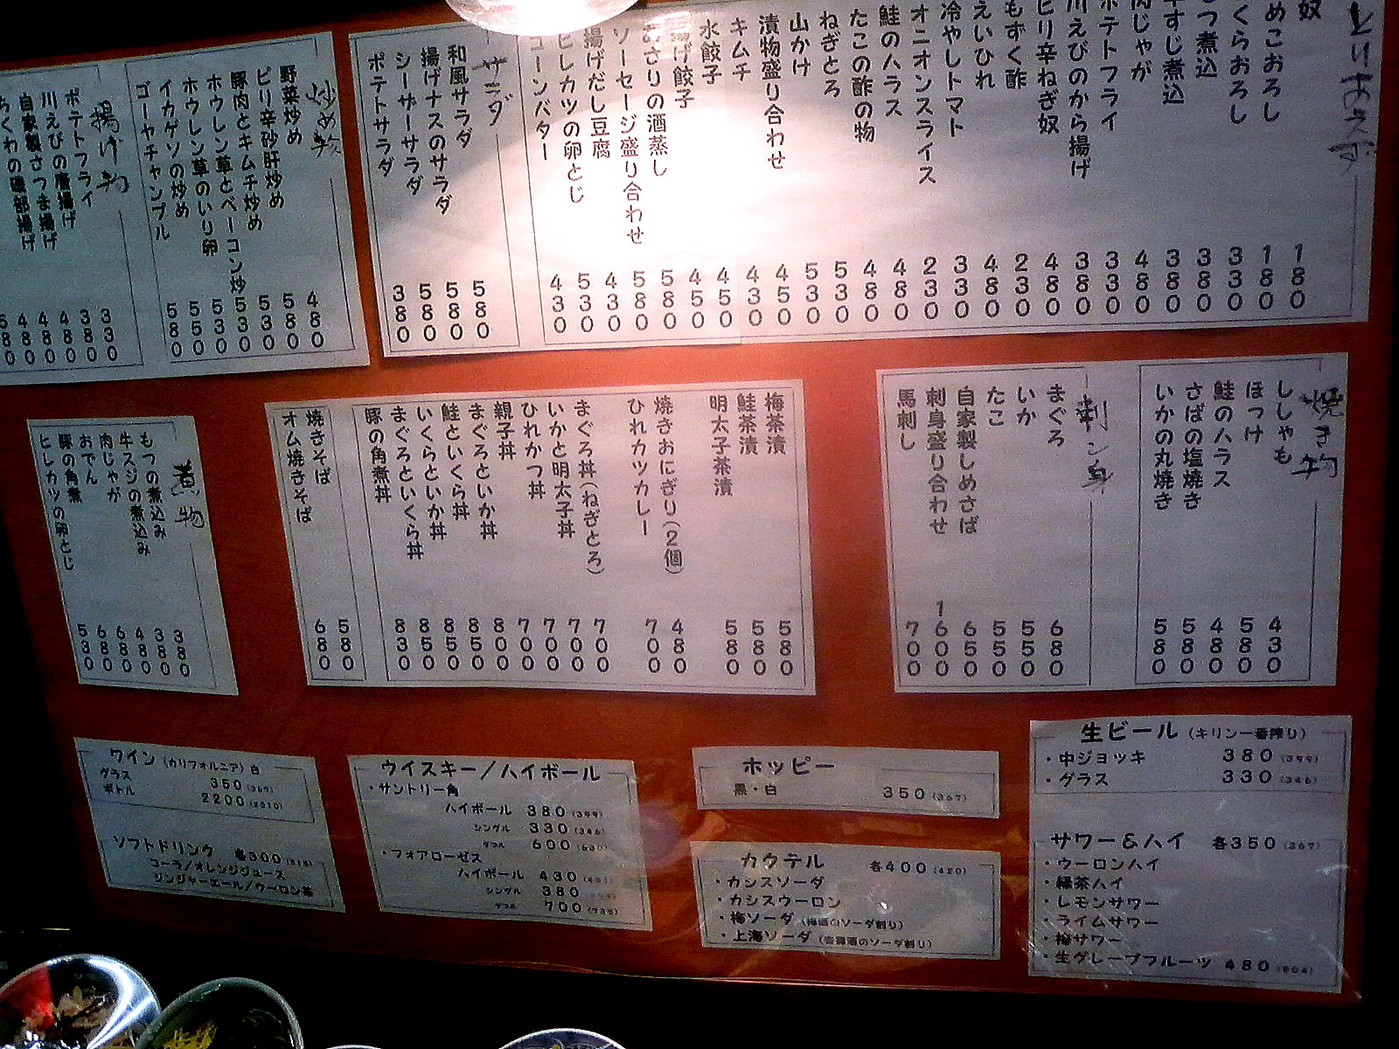 とりあえず
奴 180
めこおろし 180
くらおろし 330
つ煮込 380
すじ煮込 380
肉じゃが 480
ポテトフライ 330
川えびのから揚げ 380
ピリ辛ねぎ奴 480
もずく酢 230
えいひれ 480
冷やしトマト 330
オニオンスライス 230
鮭のハラス 480
たこの酢の物 480
ねぎとろ 530
山かけ 530
キムチ 450
漬物盛り合わせ 430
水餃子 450
揚げ餃子 450
あさりの酒蒸し 580
ソーセージ盛り合わせ 580
揚げだし豆腐 430
ヒレカツの卵とじ 530
コーンバター 430
サラダ
和風サラダ 580
揚げナスのサラダ 580
シーザーサラダ 580
ポテトサラダ 380
炒め物
野菜炒め 480
ピリ辛砂肝炒め 580
豚肉とキムチ炒め 530
ホウレン草とベーコン炒 530
ホウレン草のいり卵 530
イカゲソの炒め 580
ゴーヤチャンプル 580
揚げ物
ポテトフライ 330
川えびの唐揚げ 380
自家製さつま揚げ 480
ちくわの磯部揚げ 480
580
焼き物
ししゃも 430
ほっけ 580
鮭のハラス 480
さばの塩焼き 580
いかの丸焼き 580
刺し身
まぐろ 680
いか 550
たこ 550
自家製しめさば 650
刺身盛り合わせ 1600
馬刺し 700
梅茶漬 580
鮭茶漬 580
明太子茶漬 580
焼きおにぎり(2個) 480
ひれカツカレー 700
まぐろ丼(ねぎとろ) 700
いかと明太子丼 700
ひれかつ丼 700
親子丼 700
まぐろといか丼 800
鮭といくら丼 850
いくらといか丼 850
まぐろといくら丼 850
豚の角煮丼 830
焼きそば 580
オム焼きそば 680
煮物
もつの煮込み 380
牛スジの煮込み 380
肉じゃが 480
おでん 680
豚の角煮 680
ヒレカツの卵とじ 530
生ビール (キリン一番搾り)
・中ジョッキ 380 (399)
・グラス 330 (346)
サワー&ハイ 各350 (367)
・ウーロンハイ
・緑茶ハイ
・レモンサワー
・ライムサワー
・梅サワー
・生グレープフルーツ 480 (504)
ホッピー
黒・白 350 (367)
カクテル 各400 (420)
・カシスソーダ
・カシスウーロン
・梅ソーダ (梅酒のソーダ割り)
・上海ソーダ (杏露酒のソーダ割り)
ウイスキー/ハイボール
・サントリー角
ハイボール 380 (399)
シングル 330 (346)
ダブル 600 (630)
・フォアローゼス
ハイボール 430 (451)
シングル 380
ダブル 700 (735)
ワイン (カリフォルニア) 白
グラス 350 (367)
ボトル 2200 (2310)
ソフトドリンク 各300 (315)
コーラ/オレンジジュース
ジンジャーエール/ウーロン茶